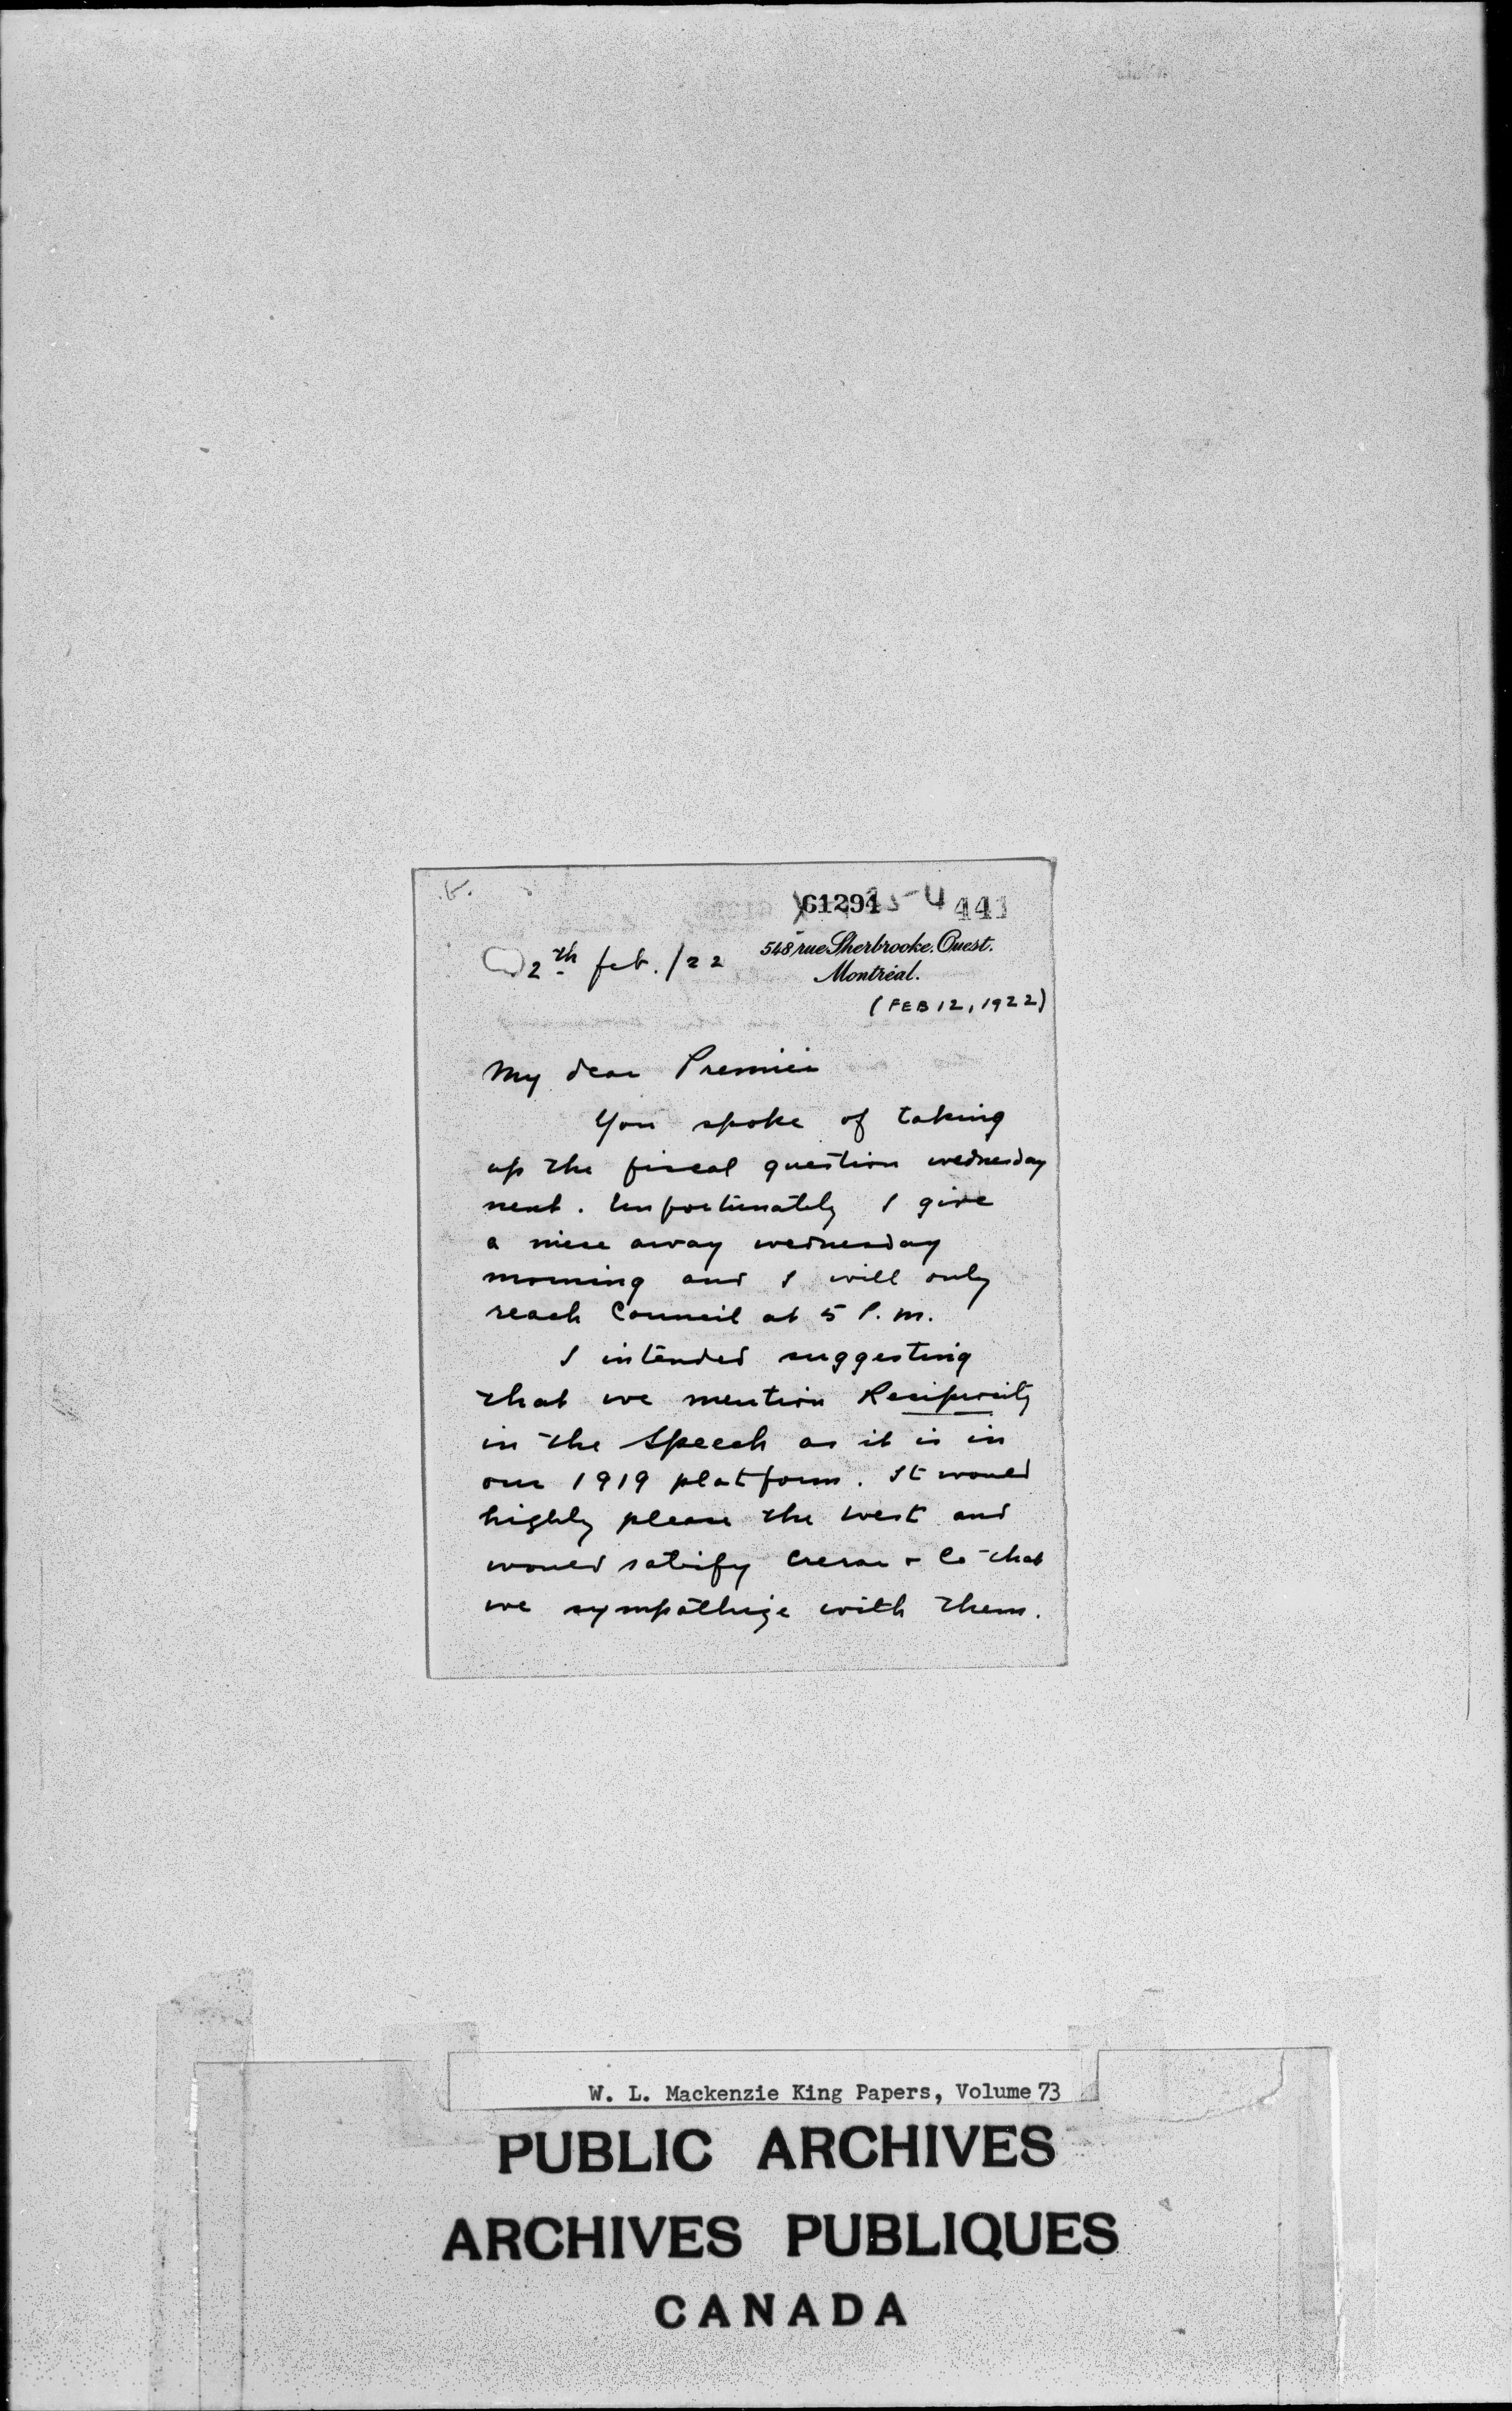 61294
441
548 rue Sherbrooke. Ouest.
Montréal.
2th feb. /22
(FEB 12, 1922)
My dear Premier
You spoke of taking
up the fiscal question wednesday
next. Unfortunately I give
a niece away wednesday
morning and I will only
reach Council at 5 P.m.
I intended suggesting
that we mention Reciprocity
in the Speech as it is in
our 1919 platform. It would
highly please the West and
would satisfy Crerar & Co that
we sympathize with them.
W. L. Mackenzie King Papers, Volume 73
PUBLIC ARCHIVES
ARCHIVES PUBLIQUES
CANADA